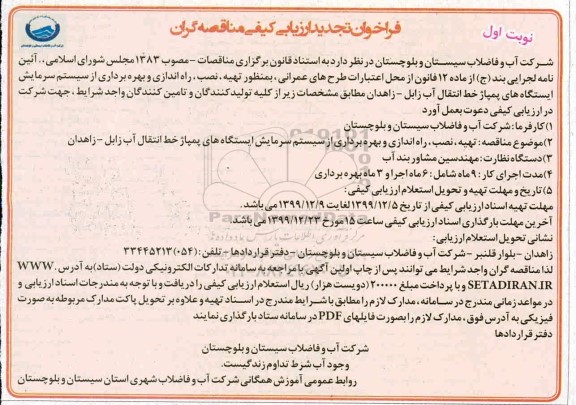 فراخوان تجدید ارزیابی کیفی مناقصه گران
نوبت اول
شرکت آب و فاضلاب سیستان و بلوچستان در نظر دارد به استناد قانون برگزاری مناقصات – مصوب ۱۳۸۳ مجلس شورای اسلامی،، آئین
نامه اجرایی بند (ج) از ماده ۱۲ قانون از محل اعتبارات طرح های عمرانی ، بمنظور تهیه ، نصب ، راه اندازی و بهره برداری از سیستم سرمایش
ایستگاه های پمپاژ خط انتقال آب زابل – زاهدان مطابق مشخصات زیر از کلیه تولید کنندگان و تامین کنندگان واجد شرایط ، جهت شرکت
در ارزیابی کیفی دعوت بعمل آورد
۱) کارفرما : شرکت آب و فاضلاب سیستان و بلوچستان
۲) موضوع مناقصه : تهیه ، نصب ، راه اندازی و بهره برداری از سیستم سرمایش ایستگاه های پمپاژ خط انتقال آب زابل – زاهدان
۳) دستگاه نظارت : مهندسین مشاور بند آب
۴) مدت اجرای کار : ۹ ماه شامل : ۶ ماه اجرا و ۳ ماه بهره برداری
۵) تاریخ و مهلت تهیه و تحویل استعلام ارزیابی کیفی :
مهلت تهیه اسناد ارزیابی کیفی از تاریخ ۱۳۹۹/۱۲/۵ لغایت ۱۳۹۹/۱۲/۹ می باشد .
آخرین مهلت بارگذاری اسناد ارزیابی کیفی ساعت ۱۵ مورخ ۱۳۹۹/۱۲/۲۳ می باشد
نشانی تحویل استعلام ارزیابی :
زاهدان – بلوار قلنبر – شرکت آب و فاضلاب سیستان و بلوچستان – دفتر قراردادها – تلفن : (۰۵۴) ۳۳۴۴۵۲۱۳
لذا مناقصه گران واجد شرایط می توانند پس از چاپ اولین آگهی با مراجعه به سامانه تدارکات الکترونیکی دولت (ستاد) به آدرس WWW.
SETADIRAN.IR و با پرداخت مبلغ ۲۰۰۰۰۰ (دویست هزار) ریال استعلام ارزیابی کیفی را دریافت و با توجه به مندرجات اسناد ارزیابی و
در مواعد زمانی مندرج در سامانه ، مدارک لازم را مطابق با شرایط مندرج در اسناد تهیه و علاوه بر تحویل پاکت مدارک مربوطه به صورت
فیزیکی به آدرس فوق ، مدارک لازم را بصورت فایلهای PDF در سامانه ستاد بارگذاری نمایند
دفتر قراردادها
شرکت آب و فاضلاب سیستان و بلوچستان
وجود آب شرط تداوم زندگیست .
روابط عمومی آموزش همگانی شرکت آب و فاضلاب شهری استان سیستان و بلوچستان